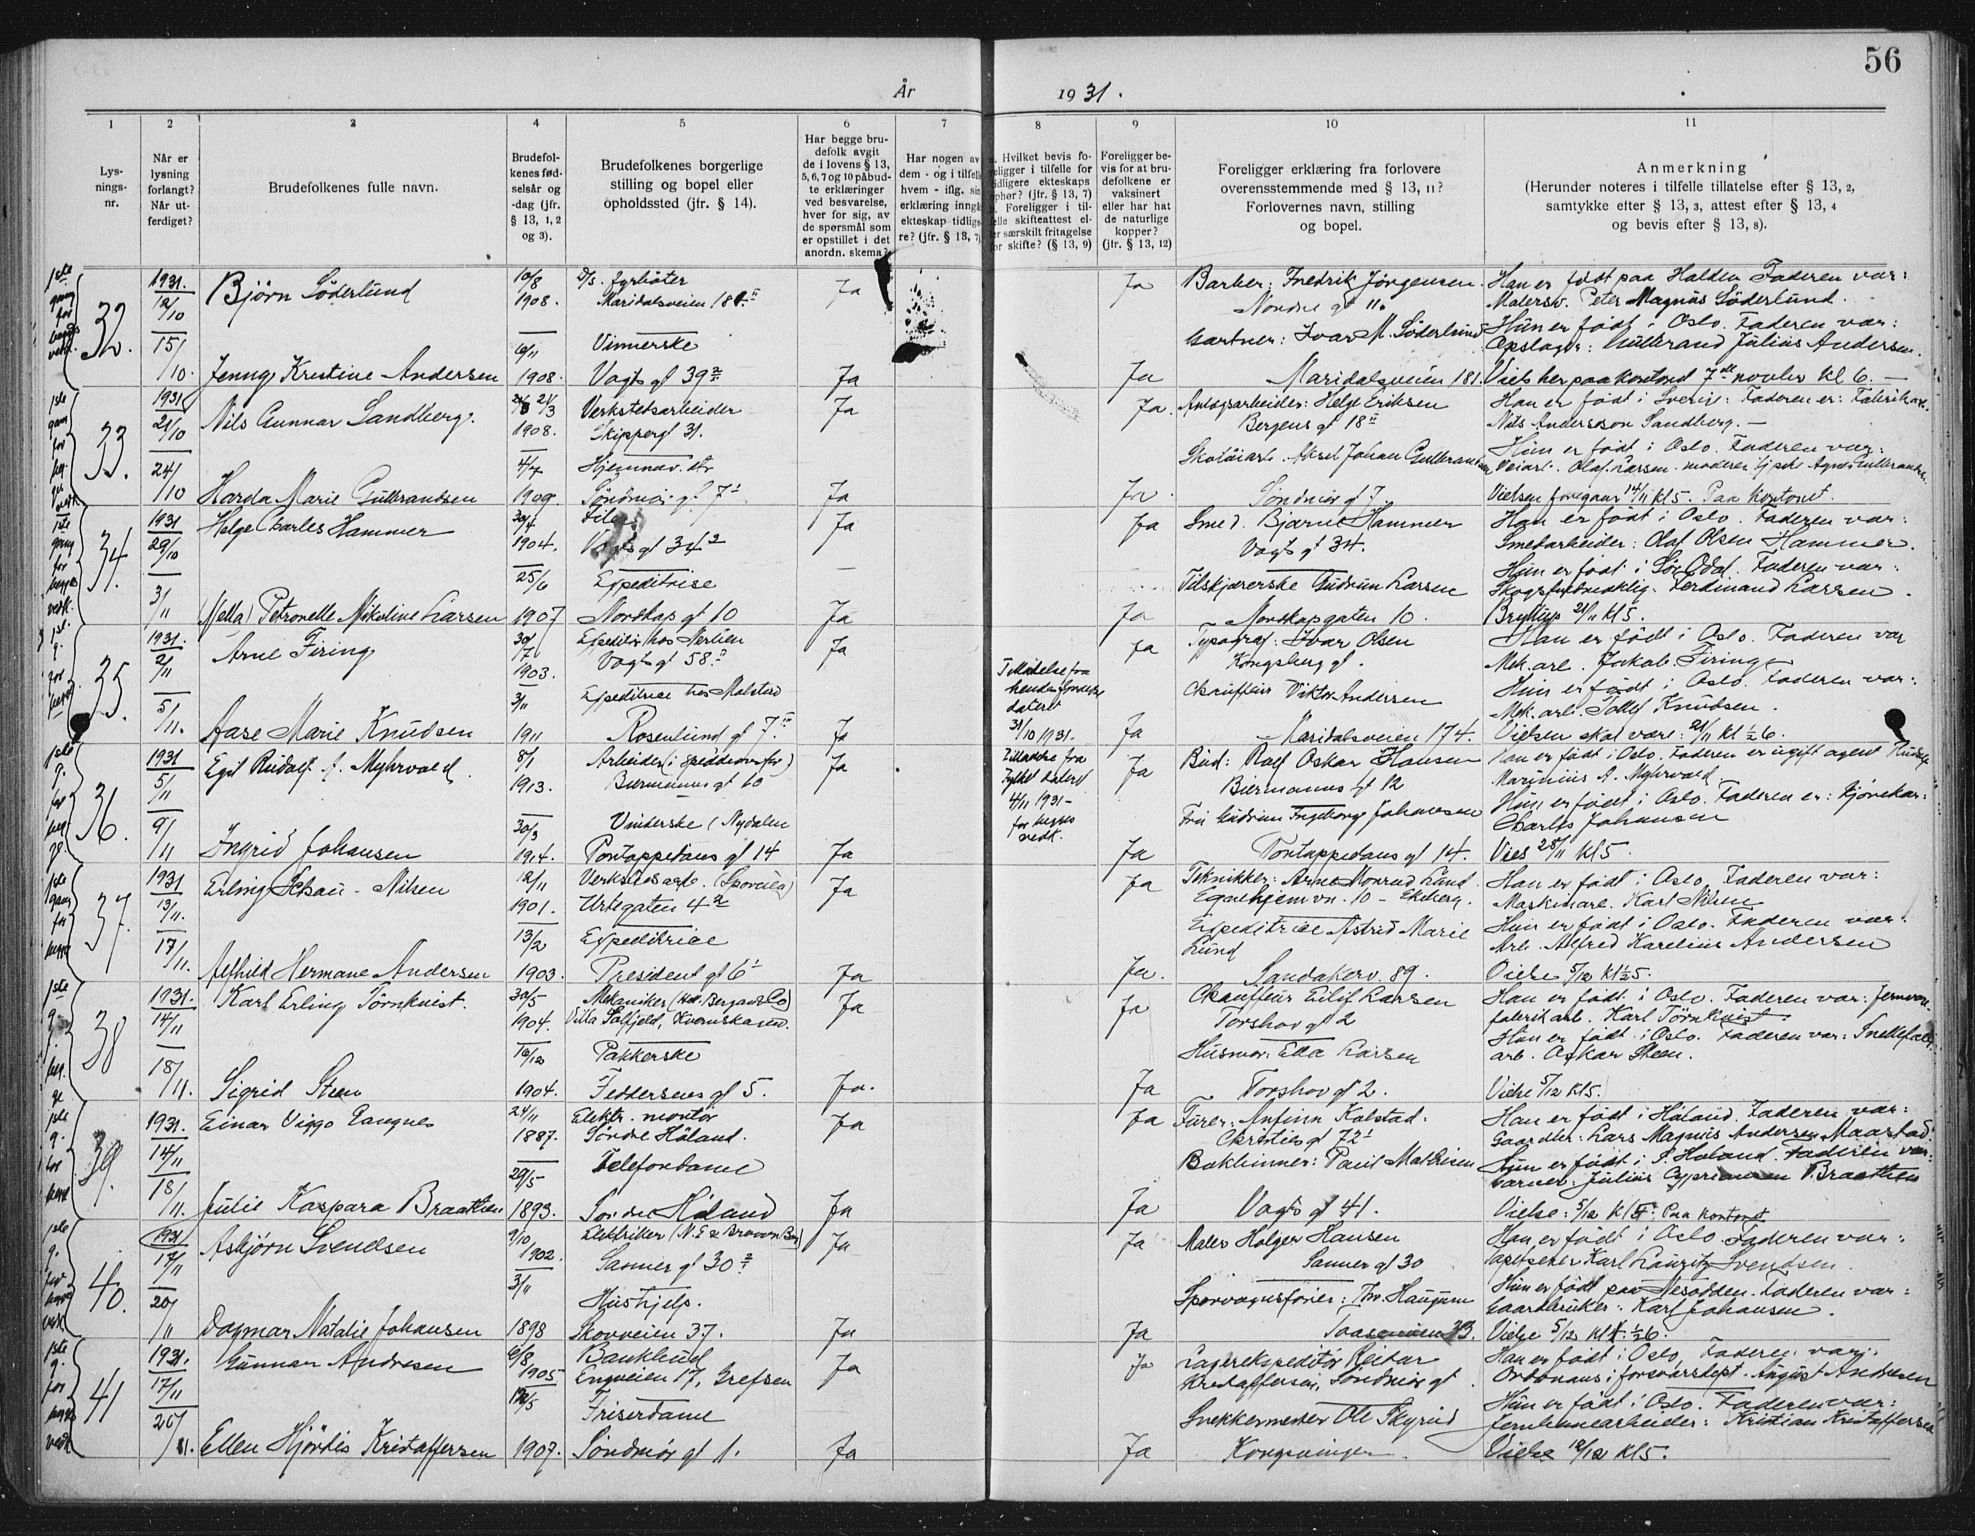 56
År 1931.
1 2 3 4 5 6 7 8 9 10 11
Lysnings-nr.
Når er lysning forlangt? Når utferdiget?
Brudefolkenes fulle navn.
Brudefolkenes fødselsår og -dag (jfr. § 13, 1, 2 og 3).
Brudefolkenes borgerlige stilling og bopel eller opholdssted (jfr. § 14).
Har begge brudefolk avgit de i lovens § 13, 5, 6, 7 og 10 påbudte erklæringer ved besvarelse, hver for sig, av de spørsmål som er opstillet i det anordn. skema?
Har nogen av dem - og i tilfelle hvem - iflg. sin erklæring inngå ekteskap tidligere? (jfr. § 13, 7)
Hvilket bevis foreligger i tilfelle for tidligere ekteskaps ophør? (jfr. § 13, 7) Foreligger i tilfelle skifteattest eller særskilt fritagelse for skifte? (§ 13, 9)
Foreligger bevis for at brudefolkene er vaksinert eller har hat de naturlige kopper? (jfr. § 13, 12)
Foreligger erklæring fra forlovere overensstemmende med § 13, 11? Forlovernes navn, stilling og bopel.
Anmerkning (Herunder noteres i tilfelle tillatelse efter § 13, 2, samtykke efter § 13, 3, attest efter § 13, 4 og bevis efter § 13, 8).
32. 1931. 12/10 Bjørn Söderlund 10/8 1908. D/S. fyrbøter Maridalsveien 181 II Ja Ja Barber: Fredrik Jørgensen Nordre gt 11. Han er født paa Halden Faderen var: Malersv. Peter Magnus Söderlund.
15/10. Jenny Kristine Andersen 6/11 1908. Vinnerske Vogts gt 39 2 Ja Ja Gartner: Ivar M. Söderlund Maridalsveien 181. Hun er født i Oslo. Faderen var: Opslager: Gulbrand Julius Andersen. Viels her paa kontoret 7de novbr kl 6. —
33. 1931 21/10 Nils Gunnar Sandberg. 21/3 1908. Verkstetsarbeider Skippergt 31. Ja Ja. Anlægsarbeider: Helge Eriksen Bergens gt 18 II Han er født i Sverig: Faderen er: Fabrikarb. Nils Andersson Sandberg. —
24/10 Harda Marie Gulbrandsen 4/7 1909. Hjemmev. str Søndmør gt 7 1 Ja Ja. Skotøiarb. Aksel Johan Gulbrandsen Søndmør gt 7. Hun er født i Oslo. Faderen var: Veiarb. Olaf Larsen. moderen Agnes Gulbrandsen Vielsen foregaar 14/11 kl 5. Paa kontoret.
34. 1931 29/10 Helge Charles Hammer 30/4 1904. Filer Vogts gt 34 2 Ja Ja Smed. Bjarne Hammer Vogts gt 34. Han er født i Oslo. Faderen var: Smedarbeider: Olaf Olsen Hammer.
3/11 (Nella) Petronelle Nikoline Larsen 25/6 1907 Expeditrise Nordkap gt 10 Ja Ja Tilskjærerske Gudrun Larsen Nordkapgaten 10. Hun er født i Sør Odal. Faderen var: Skogsfuldmektig: Ferdinand Larsen. Bryllup 21/11 kl 5.
35. 1931. 2/11 Arne Firing 30/7 1903. Expeditør hos Nerlien Vogts gt 58. II Ja Ja Typograf: Ivar Olsen Kongsberg gt. Han er født i Oslo. Faderen var Mek. arb. Jakob Firing
5/11. Aase Marie Knudsen 3/11 1911 Expeditrice hos Molstad Rosenlund gt 7 III Ja 31/10 1931. Ja Chauffeur Viktor Andersen Maridalsveien 174. Hun er født i Oslo. Faderen var: Mek. arb. Tollef Knudsen. Vielsen skal være: 21/11 kl ½6.
36. 1931 5/11 Egil Rudolf Myhrvold 8/1 1913. Arbeider Biermanns gt 10 Ja Tilladelse fra Fylket datert 4/11 1931 - for begges vedk. Ja Bud: Rolf Oskar Hansen Biermanns gt 12 Han er født i Oslo. Faderen er ugift agent Rudolf Marinius A. Myhrvold
9/11 Ingrid Johansen 30/3 1914. Vinderske (Nydalen Tortappedans gt 14 Ja Ja Fru Gudrun Ingeborg Johansen Tortappedans gt 14. Hun er født i Oslo. Faderen er: Charles Johansen Vies 28/11 kl 5.
37. 1931 13/11. Erling Schau-Nilsen 12/11 1901. Verkstedsarb. (Sporveia) Urtegaten 4 2 Ja Ja Teknikker: Arne Monrad Lund Egnehjemvn. 10 - Ekeberg. Han er født i Oslo. Faderen var: Maskinarb. Karl Nilsen
17/11. Alfhild Hermane Andersen 13/2 1903. Expeditrice President gt 6 1 Ja Ja. Expeditrice Astrid Marie Lund Sandakerv. 89. Hun er født i Oslo. Faderen var: Arb. Alfred Karelius Andersen Vielse 5/12 kl ½5.
38 1931. 14/11 Karl Erling Törnkvist. 30/5 1904. Mekaniker Villa Solfjeld, Kværnskaren. Ja Ja Chauffeur Eilif Larsen Torshov gt 2 Han er født i Oslo. Faderen var: Jernvare fabrikarb. Karl Törnkvist
18/11. Sigrid Steen 16/12 1904. Pakkerske Feddersens gt 5. Ja. Ja Husmor: Ella Larsen Torshov gt 2. Hun er født i Oslo. Faderen var: Snekkefab. arb. Oskar Steen. Vielse 5/12 kl 5.
39. 1931. 14/11 Einar Viggo Langnes 24/11 1887. Elektr. montør Søndre Høland. Ja Ja Furer: Anfinn Kalstad. Christies gt 72 1 Han er født i Høland. Faderen var: Gaardbr: Lars Magnus Andersen Maarstad
18/11. Julie Kaspara Braathen 29/5 1893. Telefondame Søndre Høland Ja Ja Bokbinner: Paul Mathisen Vogts gt 41. Hun er født i S. Høland. Faderen var: Julius Cypriansen Braathen Vielse: 5/12 kl 5. Paa kontoret
40. 1931 17/11 Asbjørn Svendsen 9/10 1902. Elektriker Sanner gt 30 2 Ja Ja Maler Holger Hansen Sanner gt 30 Han er født i Oslo. Faderen var: Tapetserer Karl Lauritz Svendsen.
20/11 Dagmar Natalie Johansen 3/11 1898 Hushjelp. Skovveien 37. Ja Ja Sporvognsfører: Thv. Haugum Taasenveien 33. Hun er født paa Nesodden. Faderen var: Gaardbruker: Karl Johansen. Vielse 5/12 kl ½6.
41 1931. 17/11 Gunnar Andresen 6/8 1905 Bankbud Engveien 17, Grefsen Ja Ja Lagerekspeditør Reidar Kristoffersen, Søndmør gt. Han er født i Oslo, Faderen var: Ordonans i forsvarsdept. August Andresen
20/11. Ellen Hjørdis Kristoffersen 12/5 1907. Friserdame Søndmør gt 1. Ja Ja Snekkermester Ole Skyrud Kongsvinger. Hun er født i Oslo. Faderen var: Jernbanearbeider: Kristian Kristoffersen Vielse 12/12 kl 5.